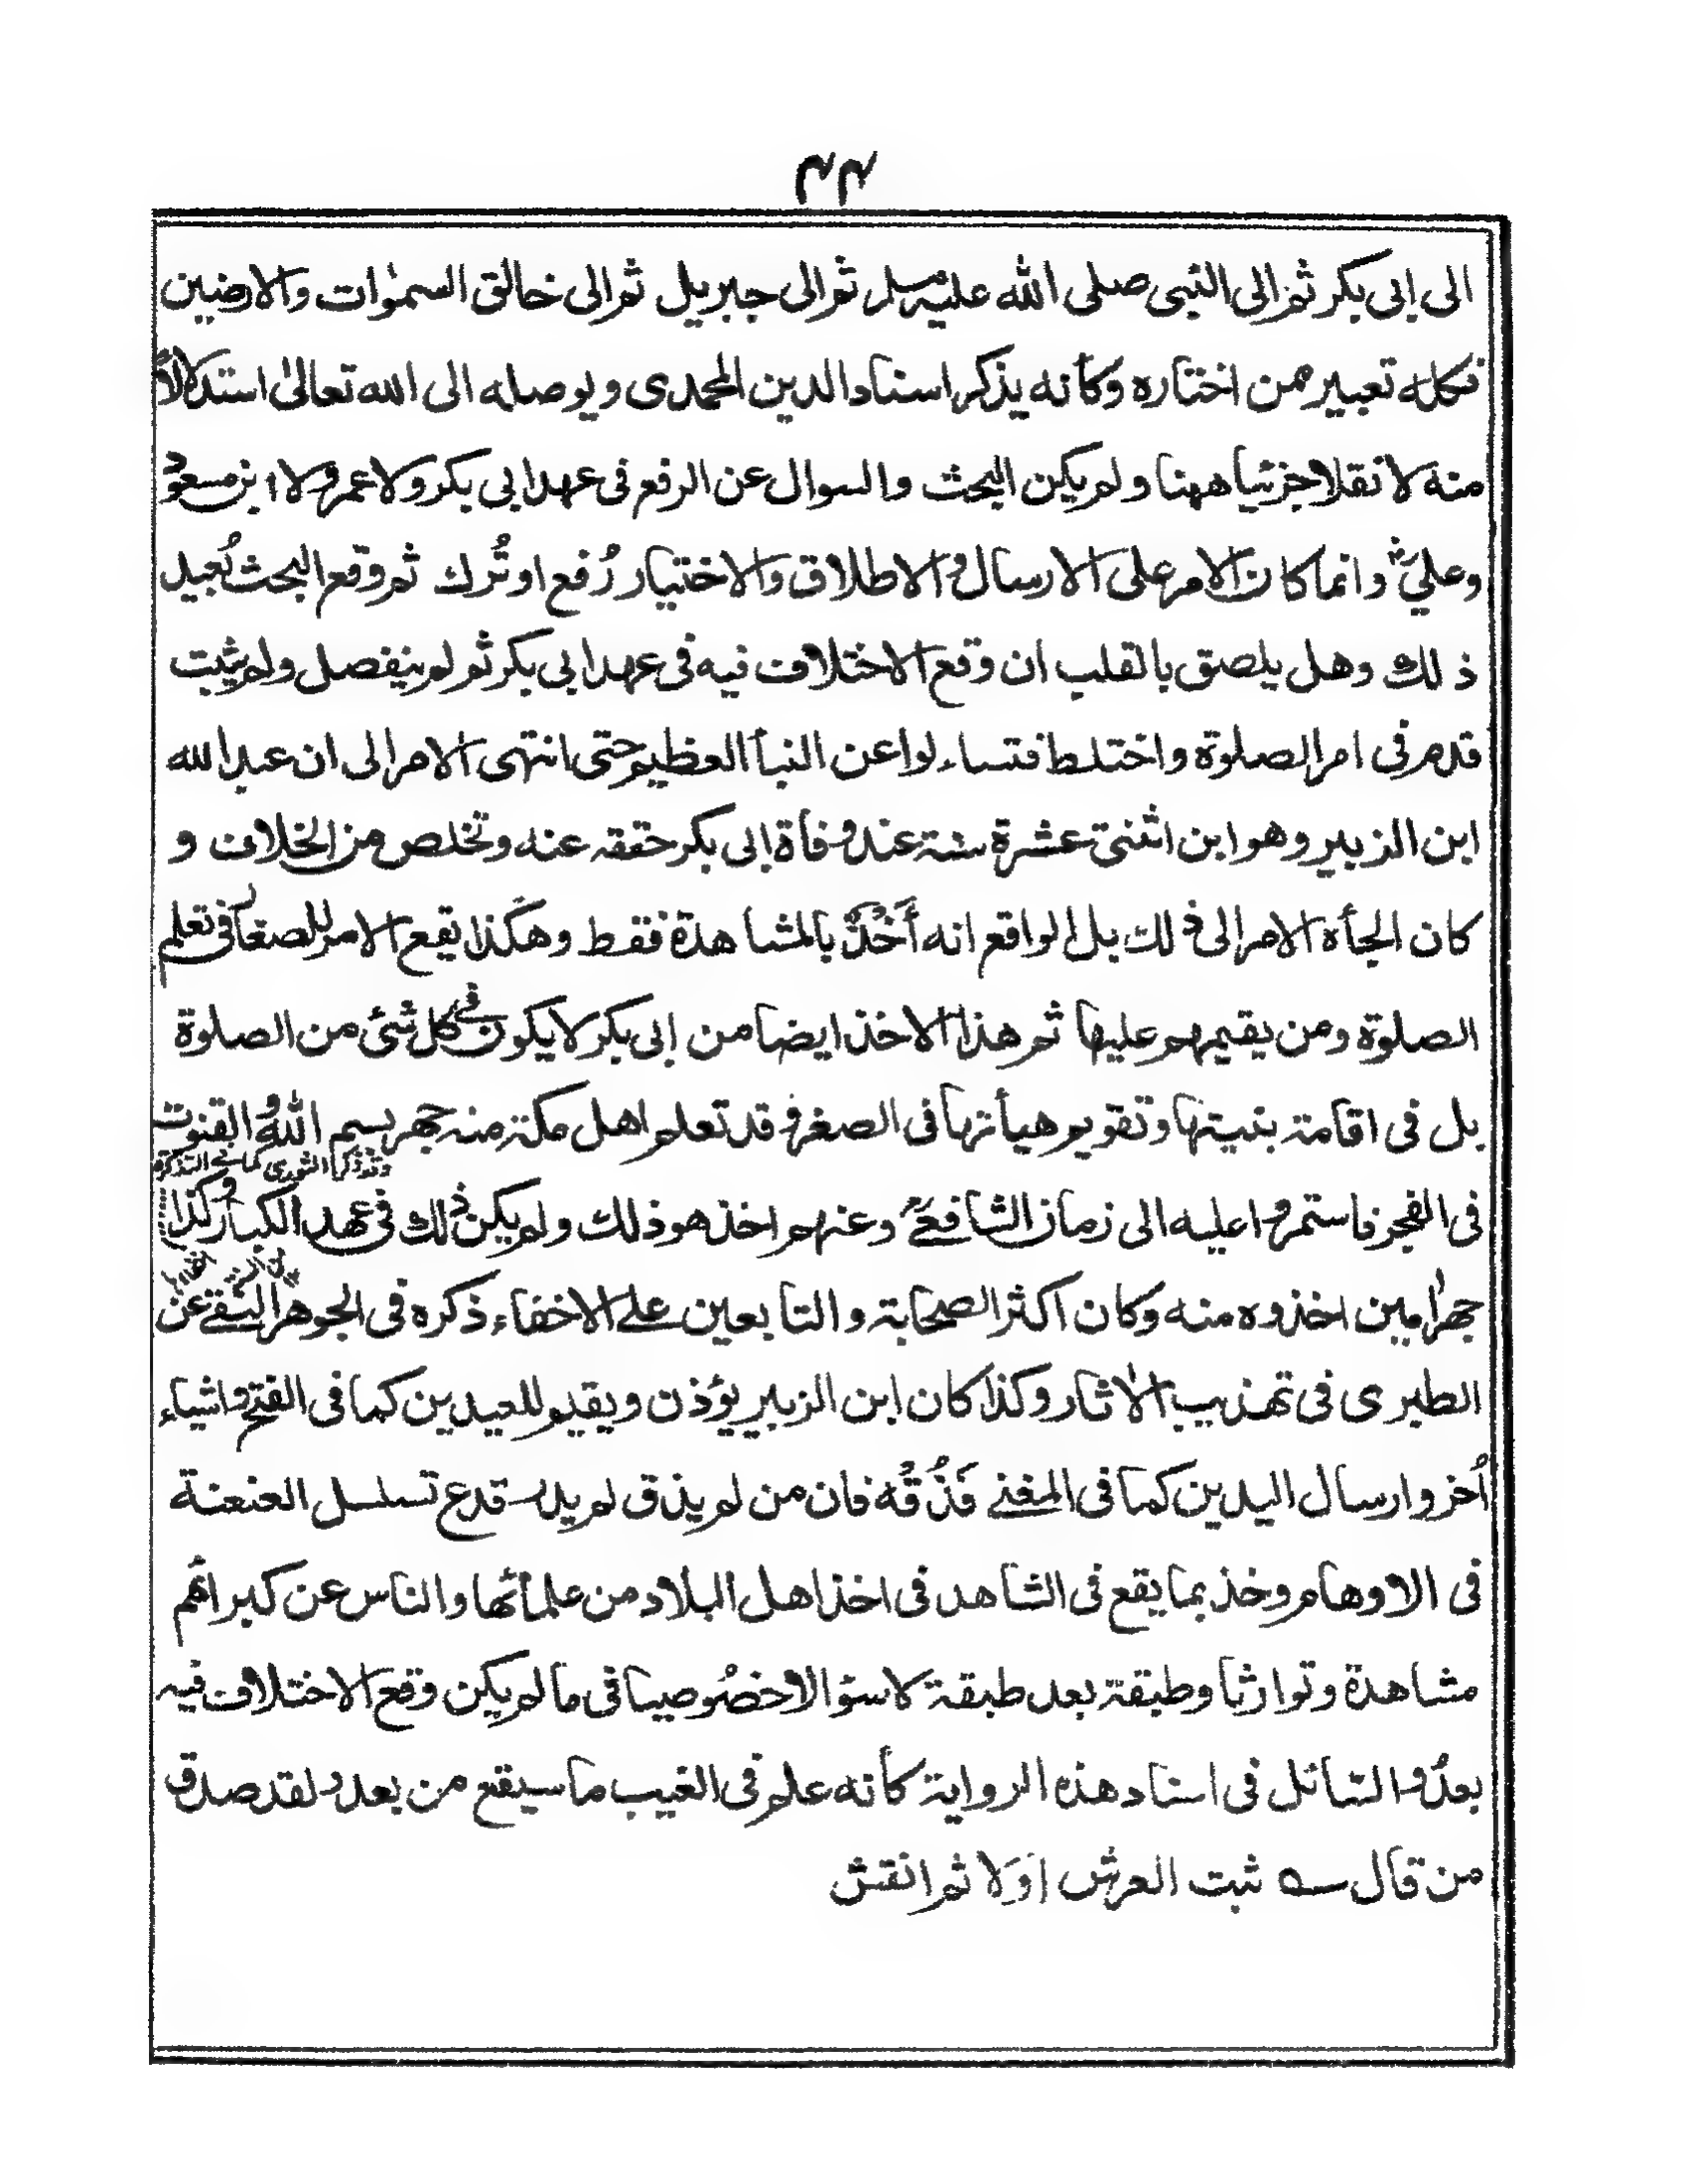 ۴۴
الى ابى بكر ثم الى النبى صلى الله عليه وسلم ثم الى جبريل ثم الى خالق السمٰوات والارضين
فكله تعبير ممن اختاره وكأنه يذكر اسناد الدين المحمدى ويوصله الى الله تعالىٰ استدلالاً
منه لا نقلا جزئيا ههنا ولم يكن البحث والسوال عن الرفع فى عهد ابى بكر ولا عمر ولا ابن مسعود
وعليؓ وانما كان الامر على الارسال والاطلاق والاختيار رُفع او تُرك ثم وقع البحث بُعيد
ذلك وهل يلصق بالقلب ان وقع الاختلاف فيه فى عهد ابى بكر ثم لم ينفصل ولم يثبت
قدم فى امر الصلوة واختلط فتساءلوا عن النبأ العظيم حتى انتهى الامر الى ان عبد الله
ابن الزبير وهو ابن اثنتى عشرة سنة عند وفاة ابى بكر حققه عنه وتخلص من الخلاف و
كان الجأه الامر الى ذلك بل الواقع انه أَخْذٌ بالمشاهدة فقط وهكذا يقع الامر للصغار فى تعلم
الصلوة ومن يقيمهم عليها ثم هذا الاخذ ايضا من ابى بكر لا يكون فى كل شئ من الصلوة
بل فى اقامة بنيتها وتقويم هيأتها فى الصغر وقد تعلم اهل مكة منه جهر بسم الله والقنوت
وقد ذكر الثورى كما فى التذكرة
فى الفجر فاستمروا عليه الى زمان الشافعىؒ وعنهم اخذ هو ذلك ولم يكن ذلك فى عهد الكبار وكذا
جهراٰمين اخذوه منه وكان اكثر الصحابة والتابعين على الاخفاء ذكره فى الجوهر النقى عن
الطبرى فى تهذيب الاٰثار وكذا كان ابن الزبير يؤذن ويقيم للعيدين كما فى الفتح واشياء
اُخر وارسال اليدين كما فى المغنى فَذُقْه فان من لم يذق لم يدر قدع تسلسل العنعنة
فى الاوهام وخذ بما يقع فى الشاهد فى اخذ اهل البلاد من علمائها والناس عن كبرائهم
مشاهدة وتوارثا وطبقة بعد طبقة لا سؤالا خصوصيا فى ما لم يكن وقع الاختلاف فيه
بعدُ والسائل فى اسناد هذه الرواية كأنه علم فى الغيب ما سيقع من بعد ولقد صدق
من قال ؎ ثبت العرش اولا ثم انقش